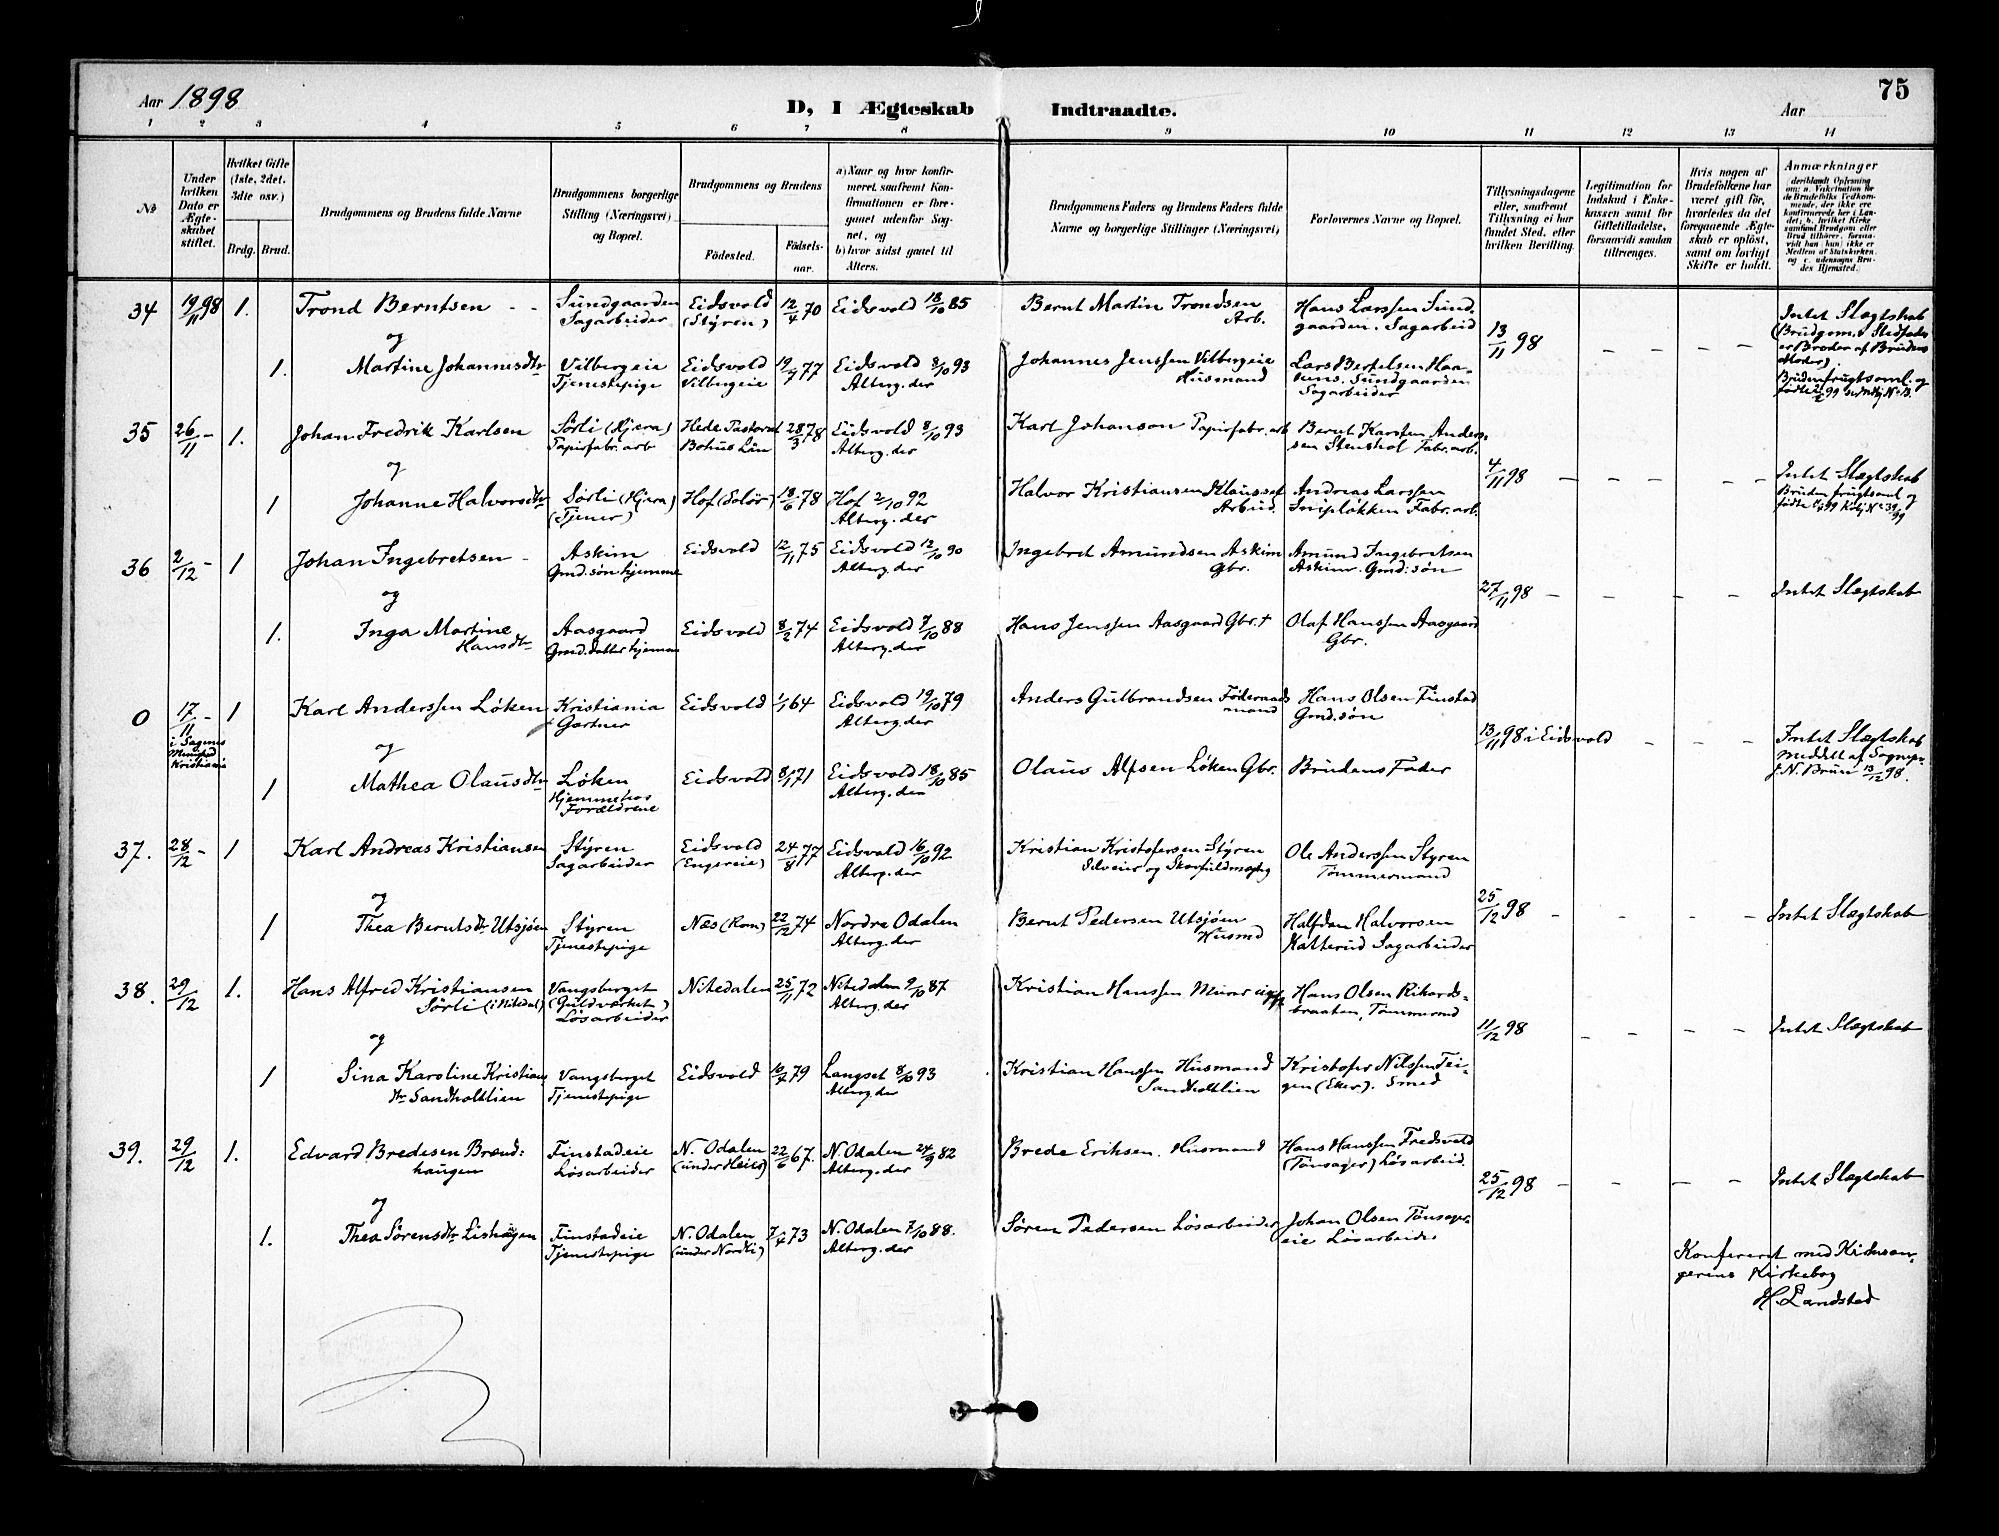 75
Aar 1898
D, I Ægteskab Indtraadte.
Aar
1 2 3 4 5 6 7 8 9 10 11 12 13 14
№
Under hvilken Dato er Ægteskabet stiftet.
Hvilket Gifte (1ste, 2det, 3die osv.)
Brdg. Brud.
Brudgommens og Brudens fulde Navne
Brudgommens borgerlige Stilling (Næringsvei) og Bopæl.
Brudgommens og Brudens
Födested. Födselsaar.
a) Naar og hvor konfirmeret, saafremt Konfirmationen er foregaaet udenfor Sognet, og
b) hvor sidst gaaet til Alters.
Brudgommens Faders og Brudens Faders fulde Navne og borgerlige Stillinger (Næringsvei)
Forlovernes Navne og Bopæl.
Tillysningsdagene eller, saafremt Tillysning ei har fundet Sted, efter hvilken Bevilling.
Legitimation for Indskud i Enkekassen samt for Giftetilladelse, forsaavidt saadan tiltrænges.
Hvis nogen af Brudefolkene har været gift før, hvorledes da det foregaaende Ægteskab er oplöst, samt om lovligt Skifte er holdt.
Anmærkninger
34 19/11 98 1. Trond Berntsen Sundgaarden Sagarbeider Eidsvold (Styren) 12/4 70 Eidsvold 18/10 85 Bernt Martin Trondsen Arb. Hans Larssen Sundgaarden. Sagarbeid
og
13/11 98 Intet Slægtskab (Brudgom. Stedfader er Broder af Brudens Moder)
1. Martine Johannesdtr Vilbergeie Tjenestepige Eidsvold Vilbergeie 19/7 77 Eidsvold 8/10 93 Alterg. der Johannes Jenssen Vilbergeie Husmand Lars Bertelsen Sundgaarden Sagarbeider
35 26/11 – 1. Johan Fredrik Karlsen Sørli (Hjera) Papirfabr. arb Hede Pastorat Bohus Län 28/3 78 Eidsvold 8/10 93 Alterg. der Karl Johanson Papirfabr. arb Bernt Karsten Anderssen Stenshol Fabr. arb.
og
4/11 98 Intet Slægtskab
1 Johanne Halvorsdtr Sørli (Hjera) (Tjener) Hof (Solør) 13/6 78 Hof 2/10 92 Alterg. der Halvor Kristiansen Arbeid. Andreas Larssen Fabr. arb.
36 2/12 – 1 Johan Ingebretsen – Askim Gmd. søn hjemme Eidsvold 12/11 75 Eidsvold 12/10 90 Alterg. der Ingebret Amundsen Askim Gbr. Amund Ingebretsen Askim. Gmd: søn
og
27/11 98 Intet Slægtskab
1. Inga Martine Hansdtr Aasgaard Gmd. datter hjemme Eidsvold 8/2 74 Eidsvold 7/10 88 Alterg. der Hans Jenssen Aasgaard Gbr. + Olaf Hanssen Aasgaard Gbr.
0 17/11 – i Sagenes Menighed Kristiania 1 Karl Anderssen Løken Kristiania Gartner Eidsvold 1/1 64 Eidsvold 19/10 79 Alterg. der Anders Gulbrandsen Føderaadsmand Hans Olsen Finstad Gmd. søn
og
13/11 98 i Eidsvold Intet Slægtskab meddelt af Sognepr. J. N. Bruun 13/12 98.
1 Mathea Olausdtr Løken Hjemme hos Forældrene Eidsvold 8/1 71 Eidsvold 18/10 85 Alterg. der Olaus Alfsen Løken Gbr. Brudens Fader
37. 28/12 – 1 Karl Andreas Kristiansen Styren Sagarbeider Eidsvold (Engseie) 24/8 77 Eidsvold 16/10 92 Alterg. der Kristian Kristofersen Styren Selveier og Ole Anderssen Styren Tømmermand
og
25/12 98 Intet Slægtskab
1 Thea Berntsdtr Utsjøen Styren Tjenestepige Næs (Rom) 22/12 74 Nordre Odalen Alterg. der Bernt Pedersen Utsjøen Husmd Halfdan Halvorsen Katterud Sagarbeider
38. 29/12 1. Hans Alfred Kristiansen Sørli (i Nitedal) Vangsberget (Guldværket) Løsarbeider Nitedalen 25/11 72 Nitedalen 9/10 87 Alterg. der Kristian Hanssen Murer Hans Olsen Rikardsbraaten, Tømmermd
og
11/12 98 Intet Slægtskab
1 Sina Karoline Kristiansdtr Sandholtlien Vangsberget Tjenestepige Eidsvold 10/7 79 Langset 8/10 93 Alterg. der Kristian Hanssen Husmand Sandholtlien Kristofer Nilssen Teigen (Eker). Smed
39. 29/12 1. Edvard Bredesen Brændhaugen Finstadeie Løsarbeider N. Odalen 22/6 67. N. Odalen 24/9 82 Alterg. der Brede Eriksen. Husmand Hans Hanssen Fredsvold (Tønsager) Løsarbeid.
og
25/12 98 Intet Slægtskab
1. Thea Sørensdtr Lishagen Finstadeie Tjenestepige N. Odalen 7/4 73 N. Odalen 7/10 88. Alterg. der Søren Pedersen Løsarbeider Johan Olsen Tønsagereie Løsarbeider
Konfereret med Kirkesangerens Kirkebog
H. Landsted